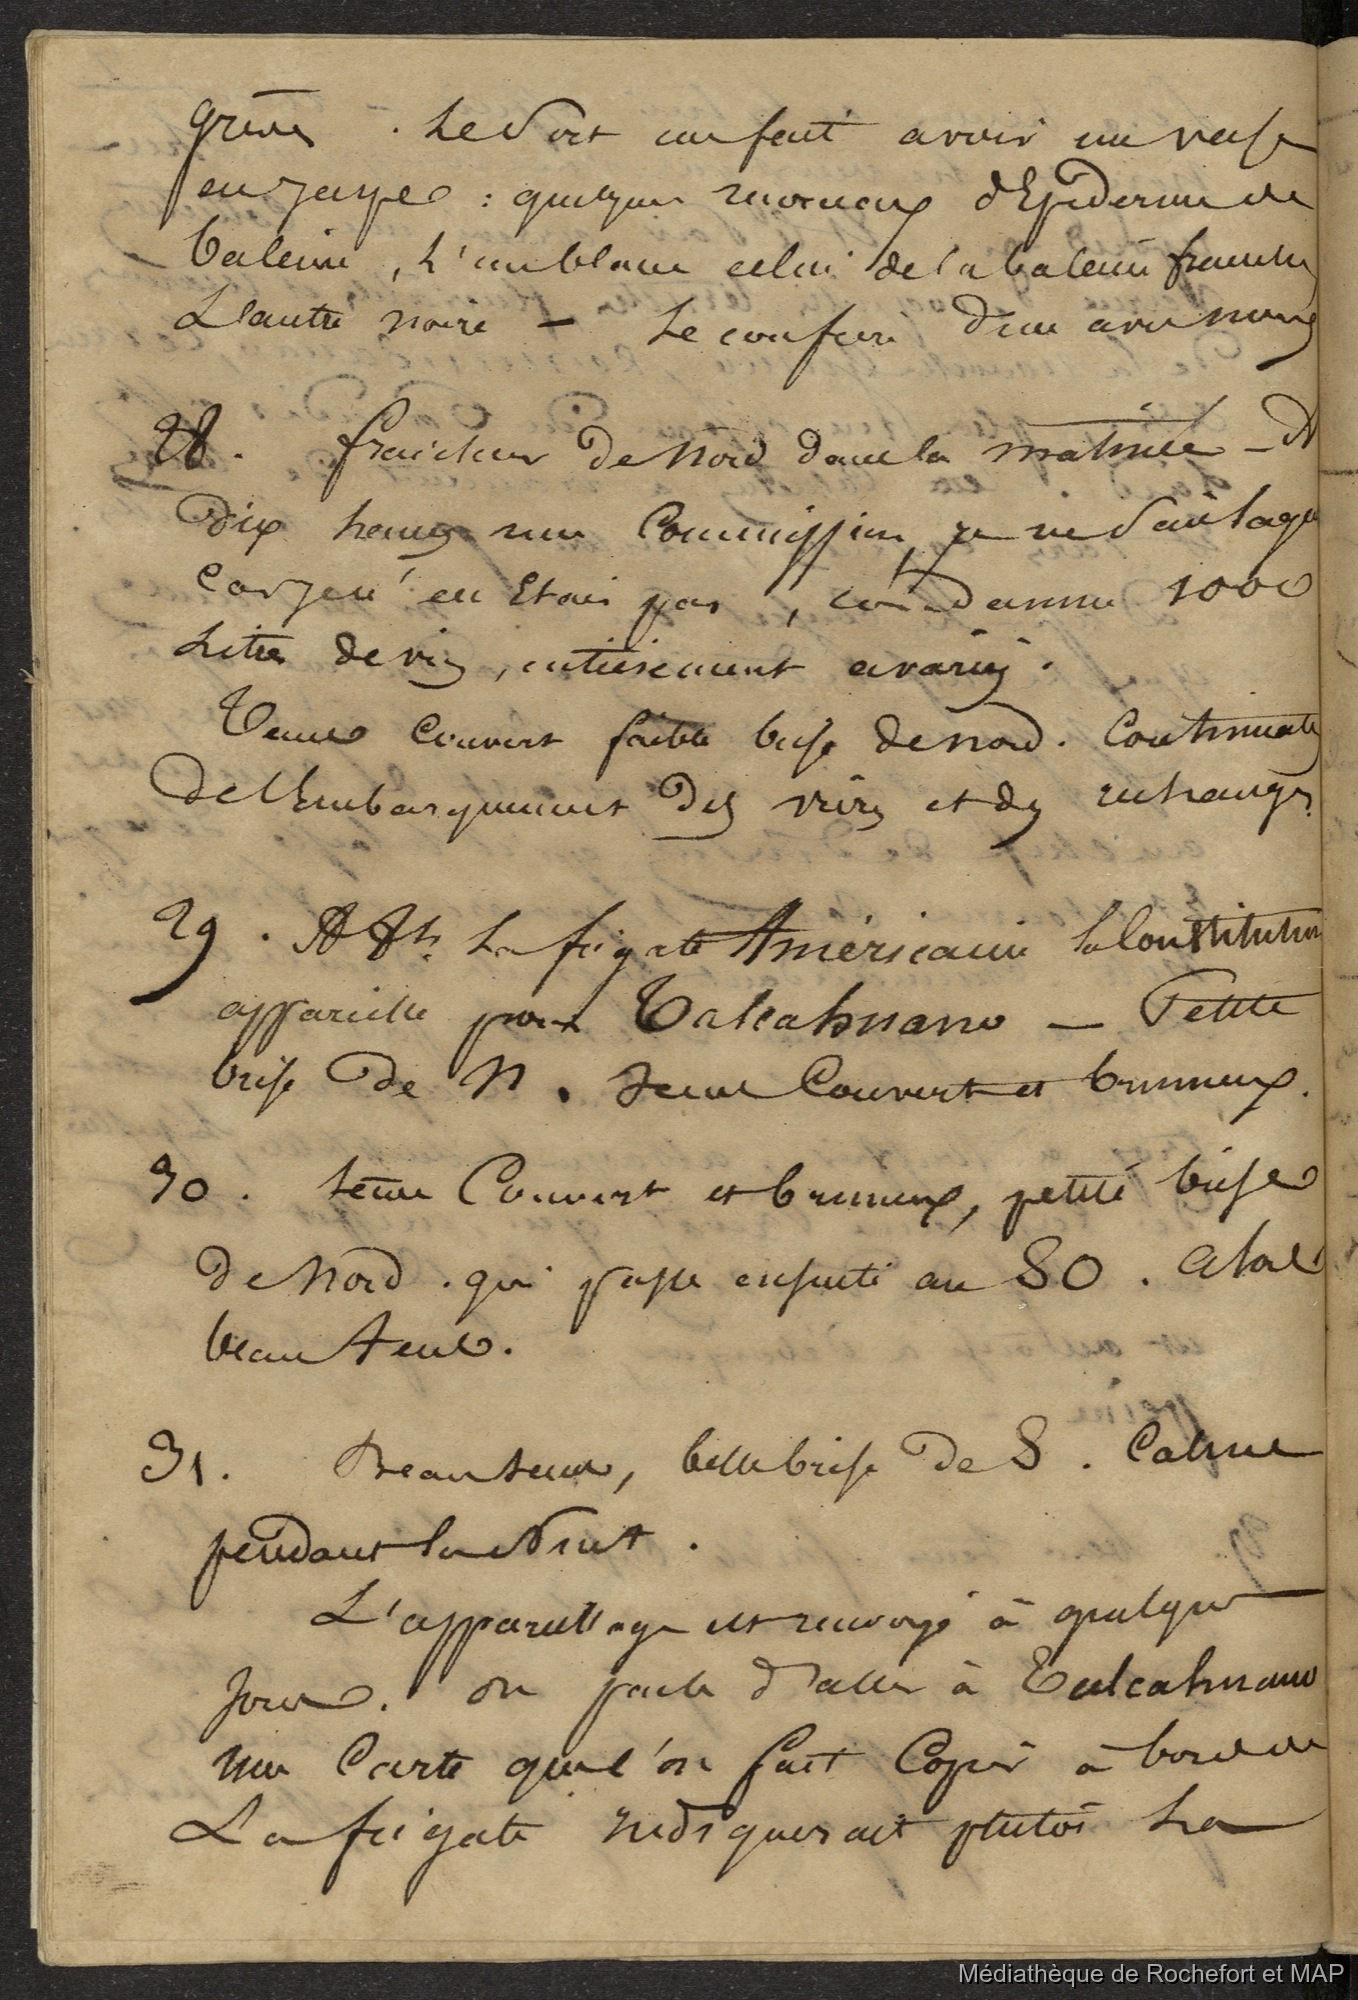 grève. Le Sort me fait avoir un vase
en jaspe : quelques morceaux d'Epiderme de
baleine, l'un blanc celui de la baleine franche
L'autre noire — Le confere d'une
28. fraicheur de Nord dans la matinée — A
dix heures une Commission, je ne Sais laquelle
Car je n'en Etais pas, condamne 1000
Litres de vin, entièrement avariés.
Tems Couvert faible brise de nord. Continuation
De l'Embarquement Des vivres et des rechanges.
29. A 8h. La frégate Américaine la Constitution
appareille pour Talcahuano — Petite
brise De N. Tems Couvert et brumeux.
30. tems Couvert et brumeux, petite brise
De Nord. qui passe ensuite au SO. alors
beau tems.
31. Beau tems, belle brise De S. Calme
pendant la Nuit.
L'appareillage est renvoyé à quelques
jours. on parle d'aller à Talcahuano
une Carte que l'on fait Copier à bord de
La frégate indiquerait plutôt La
Médiathèque de Rochefort et MAP